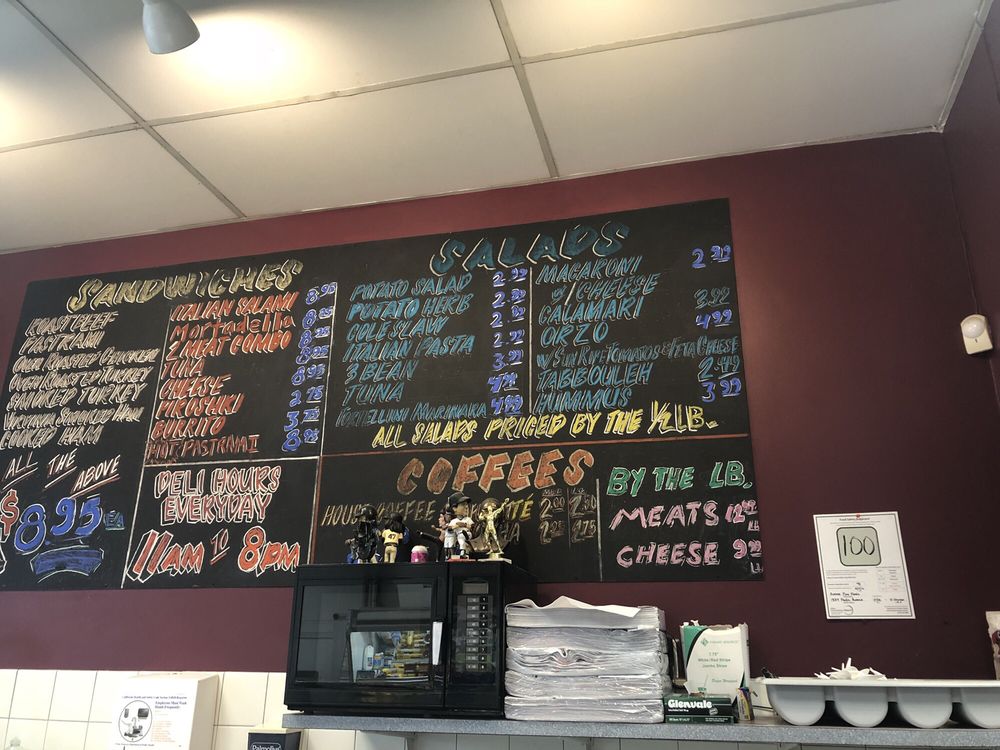 SANDWICHES
ROAST BEEF
PASTRAMI
OVEN ROASTED CHICKEN
OVEN ROASTED TURKEY
SMOKED TURKEY
VIRGINIA SMOKED HAM
COOKED HAM
ALL THE ABOVE
$8.95 EA
ITALIAN SALAMI 8.95
Mortadella 8.95
2 MEAT COMBO 8.95
TUNA 8.95
CHEESE 8.95
PIROSHKI 2.75
BURRITO 3.75
HOT PASTRAMI 8.95
DELI HOURS
EVERYDAY
11AM TO 8PM
SALADS
POTATO SALAD 2.99
POTATO HERB
COLE SLAW
ITALIAN PASTA 2.99
3 BEAN 3.99
TUNA
TORTELLINI MARINARA 4.99
MACARONI 2.99
W/ CHEESE
CALAMARI 3.99
ORZO 4.99
W/ SUN RIPE TOMATOES & FETA CHEESE
TABBOULEH 2.79
HUMMUS 3.99
ALL SALADS PRICED BY THE 1/2 LB.
COFFEES
HOUSE COFFEE 2.00 2.50
2.25 2.75
BY THE LB.
MEATS
CHEESE 9.99
100
Glenvale
1.75"
White/Red Stripe
Jumbo Straw
Employees Must Wash
Palmolive